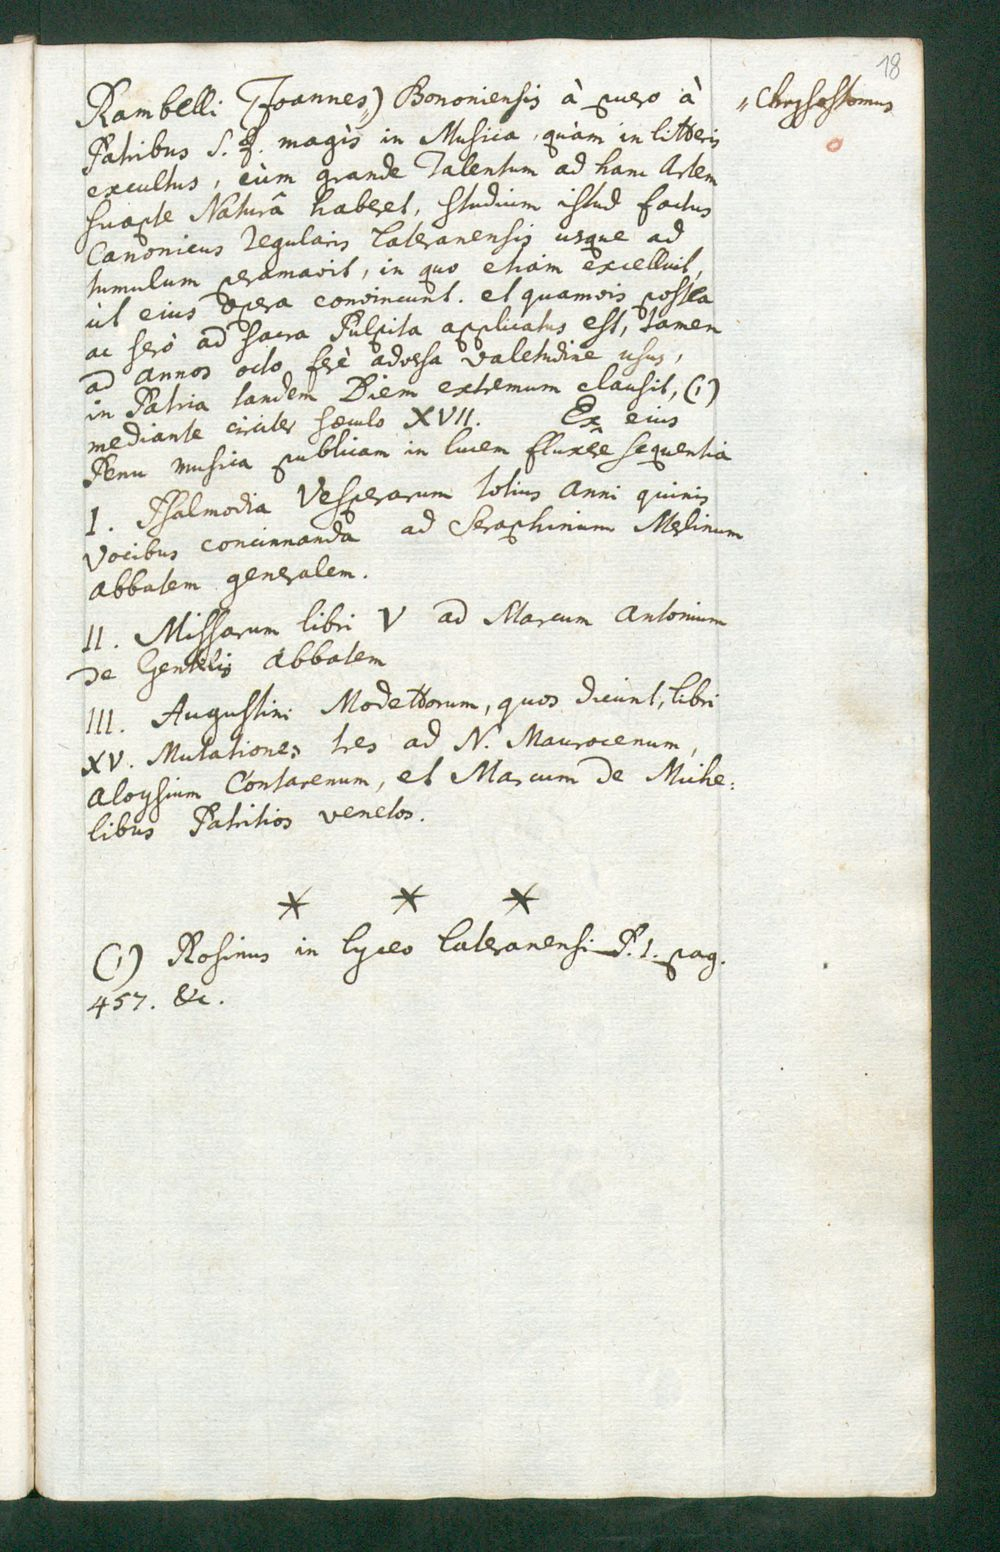 18
Rambelli (Joannes„) Bononiensis à puero à
„Chrysostomus
Patribus S. J. magìs in Musica, quàm in litteris
excultus, cùm grande Talentum ad hanc Artem
suapte Naturâ haberet, studium istud factus
Canonicus Regularis Lateranensis usque ad
tumulum peramavit, in quo etiam excelluit,
ut eius opera convincunt. et quamvis postea
ac serò ad sacra Pulpita applicatus est, tamen
ad annos octo ferè adversa valetudine usus,
in Patria tandem Diem extremum clausit, (1)
mediante circiter sæculo XVII. Ex eius
Penu musica publicam in lucem fluxere sequentia
I. Psalmodia Vesperarum totius Anni quinis
Vocibus concinnanda ad Seraphinum Merlinum
Abbatem generalem.
II. Missarum libri V ad Marcum Antonium
de Gentilis Abbatem
III. Augustini Modettorum, quos dicunt, libri
XV. Mutationes tres ad N. Maurocenum,
Aloysium Contarenum, et Marcum de Miche:
libus Patritios venetos.
* * *
(1) Rosinus in lyceo Lateranensi P. 1. pag.
457. &c.